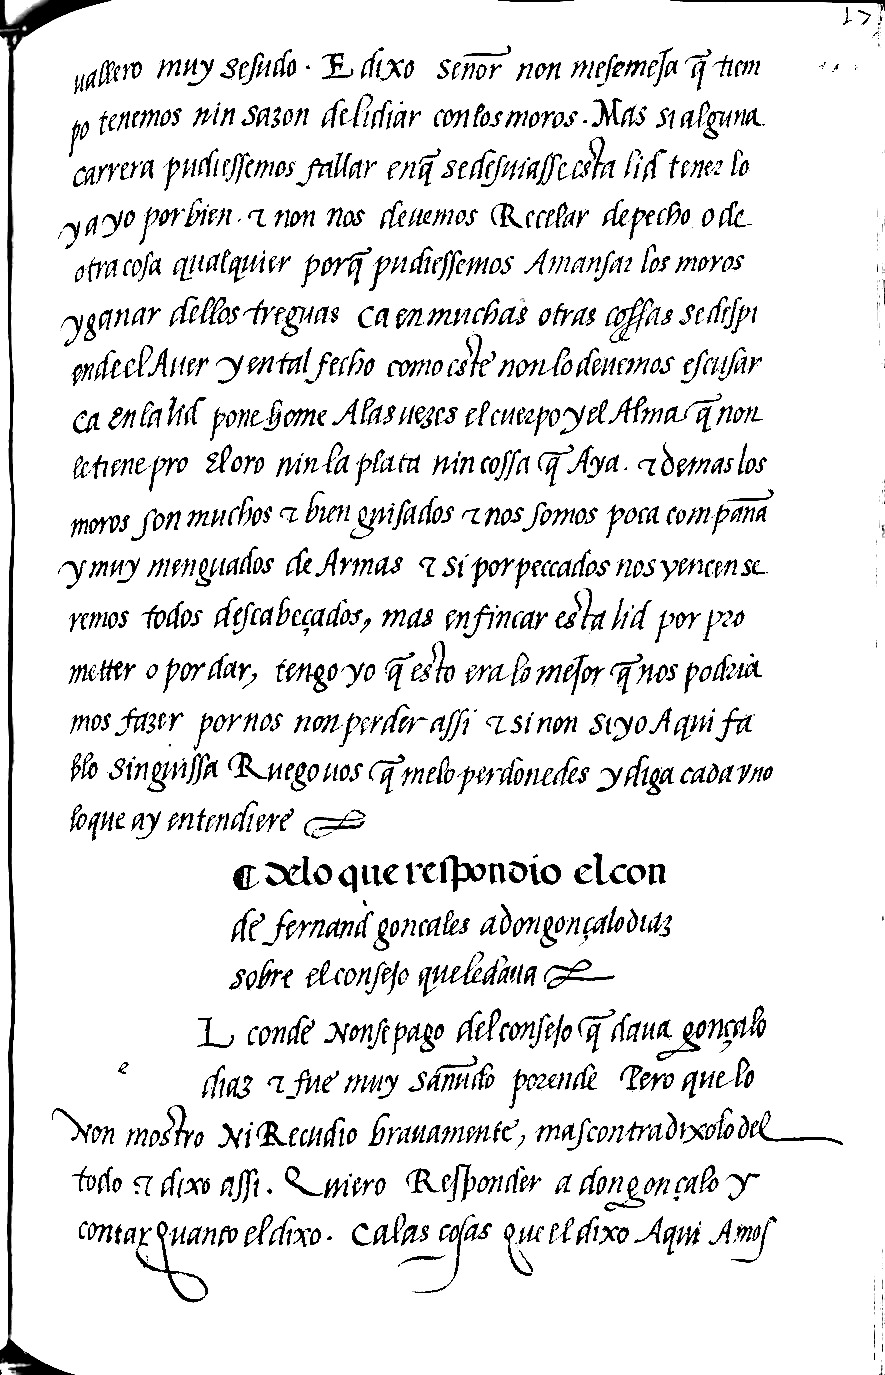 17
uallero muy sesudo. E dixo señor non mesemeja q̃ tiem
po tenemos nin sazon delidiar conlos moros. Mas si alguna
carrera pudiessemos fallar enq̃ sedesuiasse esta lid tener lo
ya yo por bien. τ non nos deuemos Recelar depecho o de
otra cosa qualquier porq̃ pudiessemos Amansar los moros
yganar dellos treguas ca en muchas otras cossas se despi
ende el Auer y en tal fecho como este non lo deuemos escusar
ca en la lid pone home Alas uezes el cuerpo y el Alma q̃ non
le tiene pro El oro nin la plata nin cossa q̃ Aya. τ demas los
moros son muchos τ bien guisados τ nos somos poca compãna
y muy menguados de Armas τ si por peccados nos vencen se
remos todos descabeçados, mas en fincar esta lid por pro
metter o por dar, tengo yo q̃ esto era lo mejor q̃ nos podria
mos fazer por nos non perder assi τ si non si yo Aqui fa
blo singuissa Ruego uos q̃ melo perdonedes y diga cada vno
loque ay entendiere
¶ delo que respondio el con
de fernand goncales a don gonçalo diaz
sobre el consejo que le daua
L conde Non se pago del consejo q̃ daua gonçalo
e
diaz τ fue muy sañudo porende Pero que lo
Non mostro Ni Recudio brauamente, mas contradixolo del
todo τ dixo assi. Quiero Responder a don gonçalo y
contar quanto el dixo. Ca las cosas que el dixo Aqui Amos